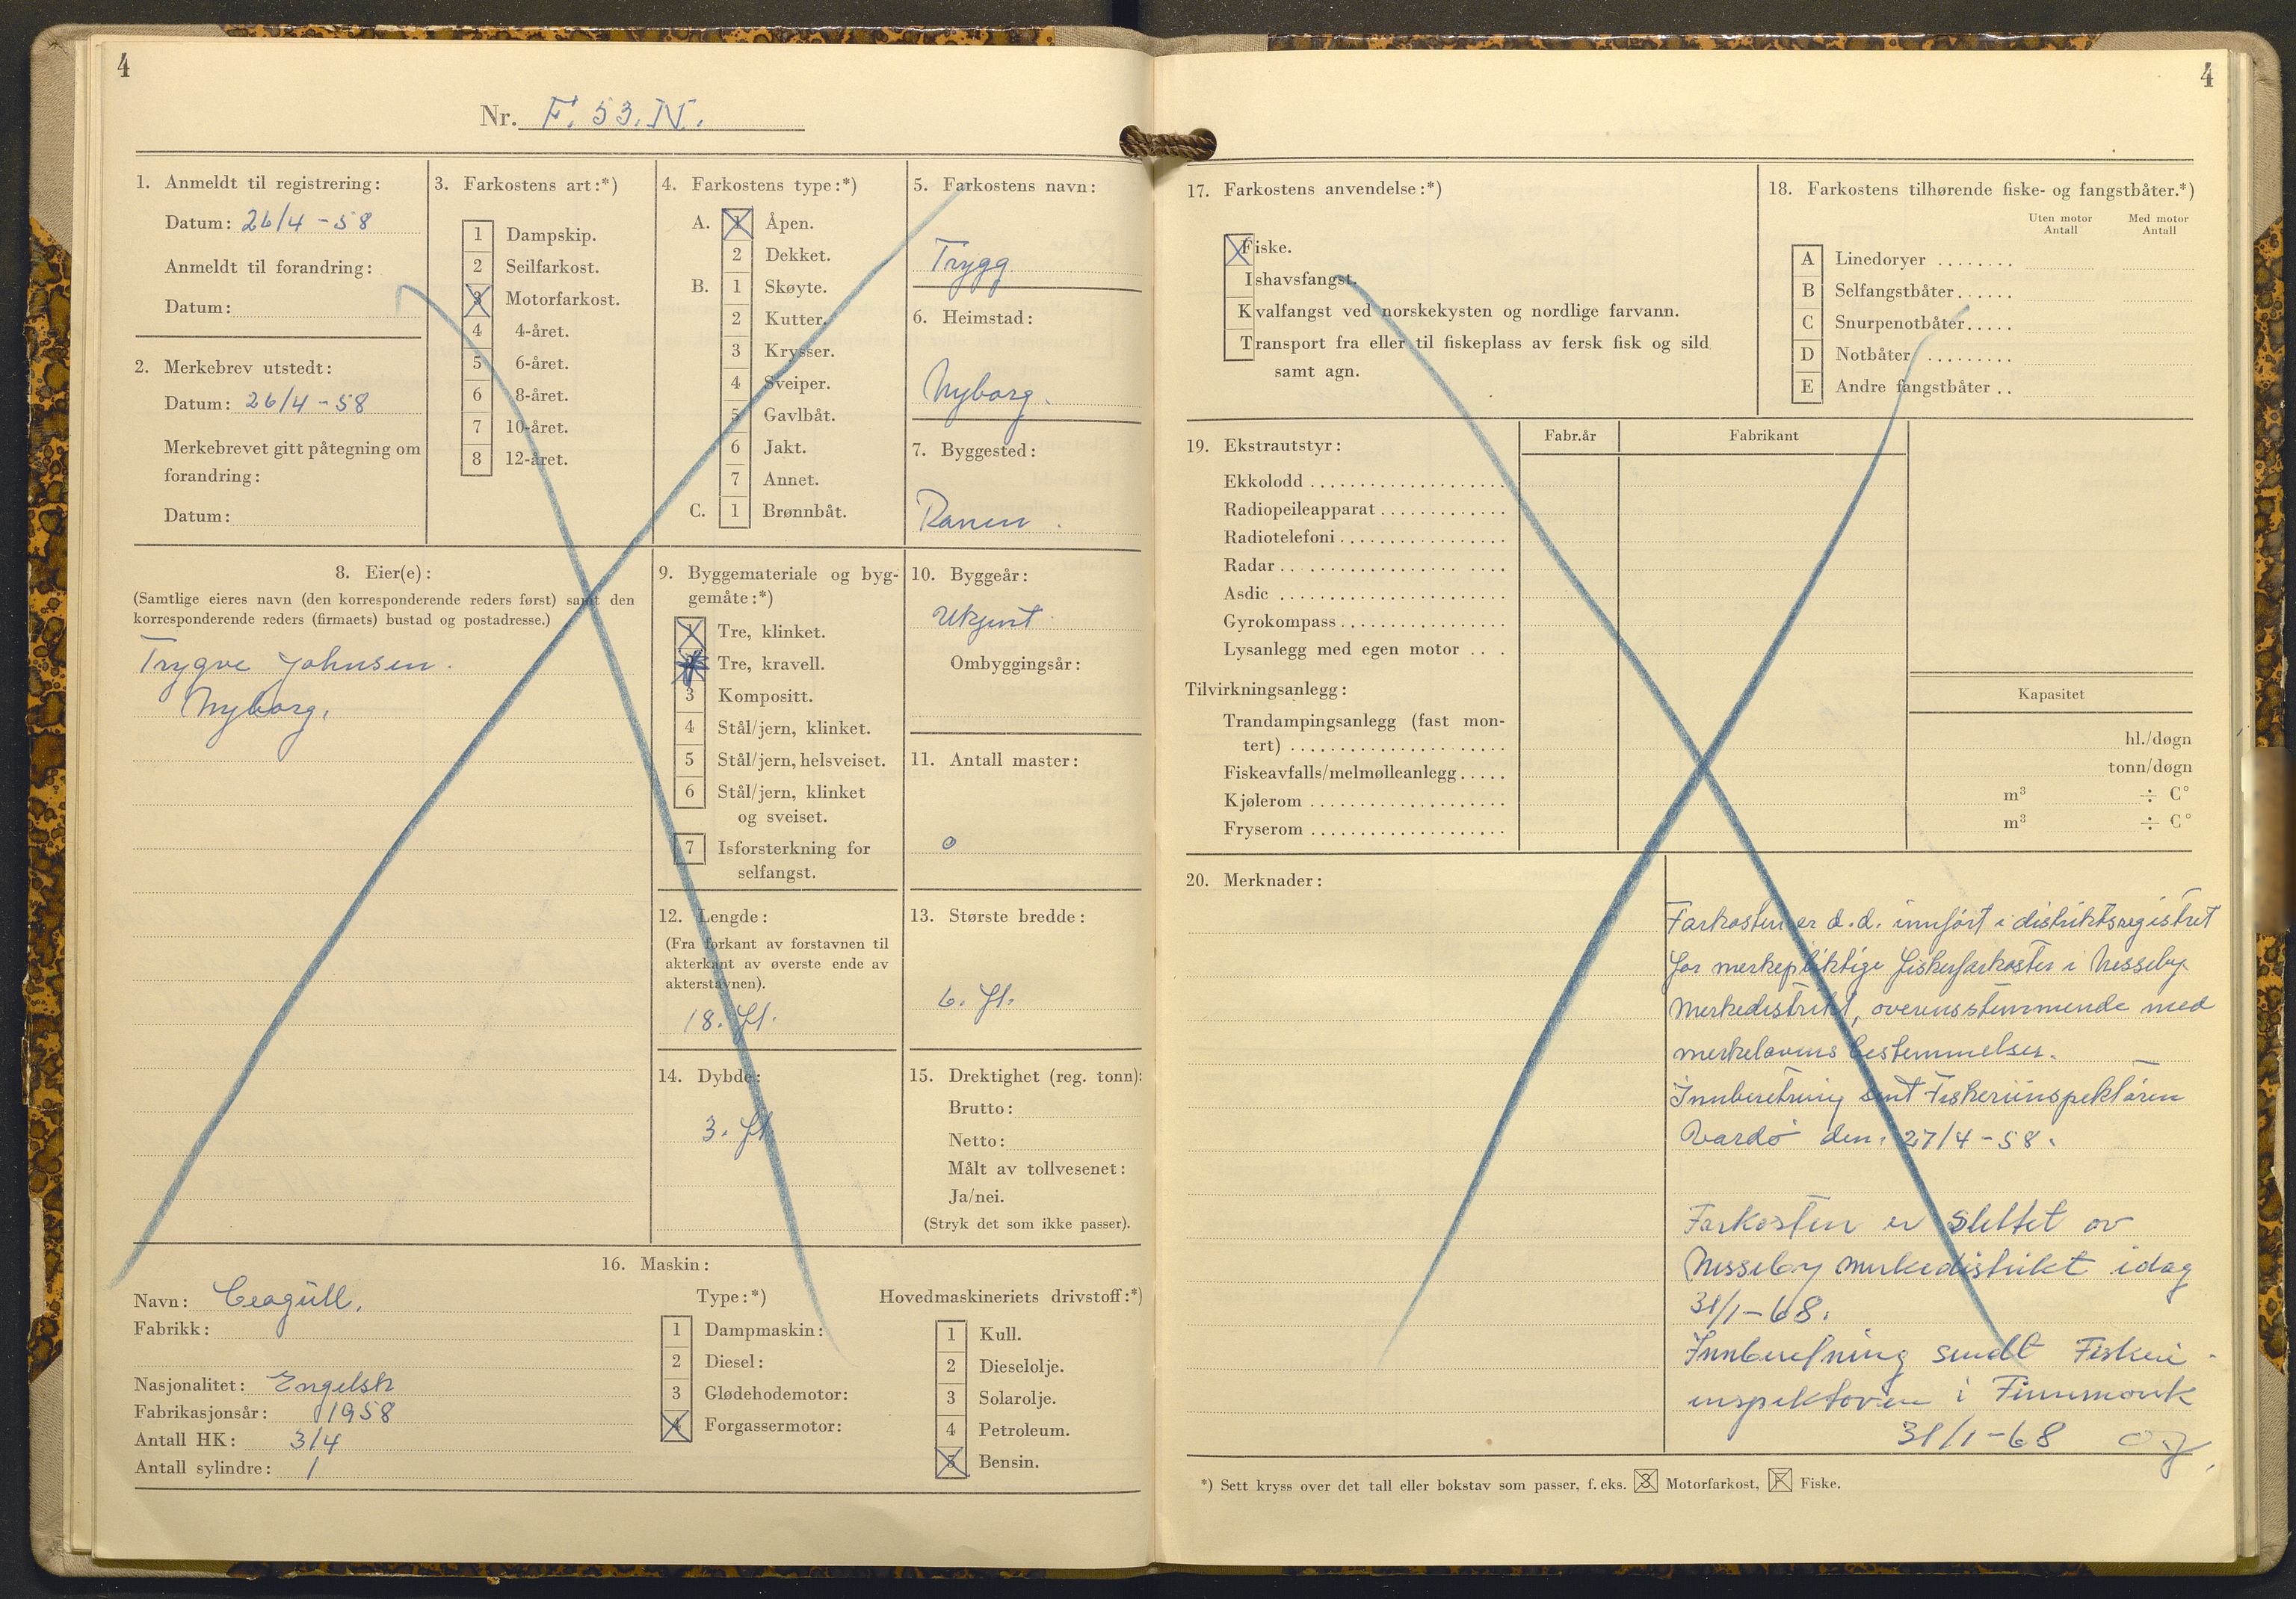 4
Nr. F. 53. N.
1. Anmeldt til registrering:
Datum: 26/4-58
Anmeldt til forandring:
Datum:
2. Merkebrev utstedt:
Datum: 26/4-58
Merkebrevet gitt påtegning om
forandring:
Datum:
3. Farkostens art:*)
1 Dampskip.
2 Seilfarkost.
3 Motorfarkost.
4 4-året.
5 6-året.
6 8-året.
7 10-året.
8 12-året.
4. Farkostens type:*)
A. 1 Åpen.
2 Dekket.
B. 1 Skøyte.
2 Kutter.
3 Krysser.
4 Sveiper.
5 Gavlbåt.
6 Jakt.
7 Annet.
C. 1 Brønnbåt.
5. Farkostens navn:
Trygg
6. Heimstad:
Nyborg.
7. Byggested:
Ranen.
8. Eier(e):
(Samtlige eieres navn (den korresponderende reders først) samt den
korresponderende reders (firmaets) bustad og postadresse.)
Trygve Johnsen.
Nyborg.
9. Byggemateriale og byg-
gemåte:*)
1 Tre, klinket.
Tre, kravell.
3 Kompositt.
4 Stål/jern, klinket.
5 Stål/jern, helsveiset.
6 Stål/jern, klinket
og sveiset.
7 Isforsterkning for
selfangst.
10. Byggeår:
Ukjent
Ombyggingsår:
11. Antall master:
0
12. Lengde:
(Fra forkant av forstavnen til
akterkant av øverste ende av
akterstavnen).
18. ft.
13. Største bredde:
6. ft.
14. Dybde:
3. ft.
15. Drektighet (reg. tonn):
Brutto:
Netto:
Målt av tollvesenet:
Ja/nei.
(Stryk det som ikke passer).
16. Maskin:
Navn: Ceagull.
Fabrikk:
Nasjonalitet: Engelsk
Fabrikasjonsår: 1958
Antall HK: 3/4
Antall sylindre: 1
Type:*)
1 Dampmaskin:
2 Diesel:
3 Glødehodemotor:
4 Forgassermotor:
Hovedmaskineriets drivstoff:*)
1 Kull.
2 Dieselolje.
3 Solarolje.
4 Petroleum.
5 Bensin.
4
17. Farkostens anvendelse:*)
Fiske.
Ishavsfangst.
Kvalfangst ved norskekysten og nordlige farvann.
Transport fra eller til fiskeplass av fersk fisk og sild
samt agn.
18. Farkostens tilhørende fiske- og fangstbåter.*)
Uten motor Antall Med motor Antall
A Linedoryer ........
B Selfangstbåter......
C Snurpenotbåter.....
D Notbåter .........
E Andre fangstbåter ..
19. Ekstrautstyr:
Fabr.år Fabrikant
Ekkolodd ....................
Radiopeileapparat .............
Radiotelefoni .................
Radar ....................
Asdic .......................
Gyrokompass ................
Lysanlegg med egen motor ...
Tilvirkningsanlegg:
Kapasitet
Trandampingsanlegg (fast mon-
tert) ..................... hl./døgn
Fiskeavfalls/melmølleanlegg ..... tonn/døgn
Kjølerom .................... m³ ÷ C°
Fryserom .................... m³ ÷ C°
20. Merknader:
Farkosten er d.d. innført i distriktsregistret
for merkepliktige fiskerfarkoster i Nesseby
merkedistrikt, overensstemmende med
merkelovens bestemmelser.
Innberetning sent Fiskeriinspektøren
Vardø den. 27/4-58.
Farkosten er slettet av
Nesseby merkedistrikt idag
31/1-68.
Innberetning sendt Fiskeri-
inspektøren i Finnmark
31/1-68
*) Sett kryss over det tall eller bokstav som passer, f. eks. 3 Motorfarkost, F Fiske.